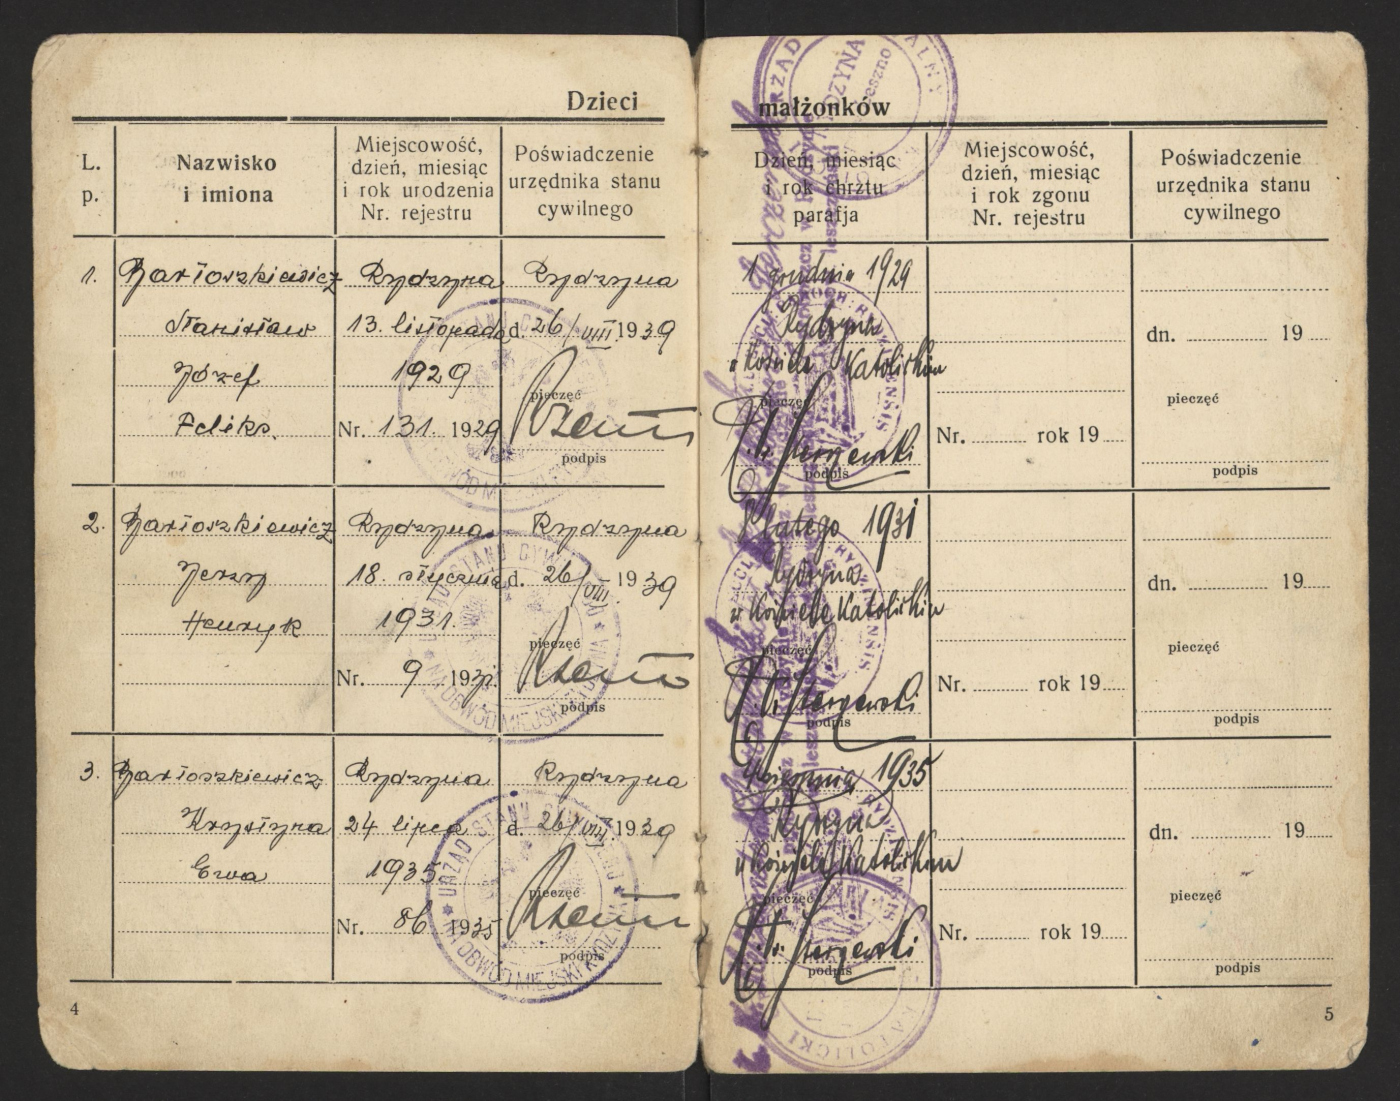 Dzieci
L. p.
Nazwisko
i imiona
Miejscowość,
dzień, miesiąc
i rok urodzenia
Nr. rejestru
Poświadczenie
urzędnika stanu
cywilnego
1. Bartoszkiewicz Rydzyna Rydzyna
Stanisław 13. listopada d. 26/VIII 1939
Józef 1929
pieczęć
Feliks. Nr. 131. 1929
podpis
2. Bartoszkiewicz Rydzyna Rydzyna
Jerzy 18. stycznia d. 26/VIII 1939
Henryk 1931.
pieczęć
Nr. 9 1931.
podpis
3. Bartoszkiewicz Rydzyna Rydzyna
Krystyna 24 lipca d. 26/VIII 1939
Ewa 1935.
pieczęć
Nr. 86 1935
podpis
URZĄD STANU CYWILNEGO
NA OBWÓD MIEJSKI RYDZYNA
4
małżonków
Dzień, miesiąc
i rok chrztu
parafja
Miejscowość,
dzień, miesiąc
i rok zgonu
Nr. rejestru
Poświadczenie
urzędnika stanu
cywilnego
1 grudnia 1929
Rydzyna
dn. 19
w Kościele Katolickim
pieczęć
pieczęć
Nr. rok 19
podpis
podpis
lutego 1931
Rydzyna
dn. 19
w Kościele Katolickim
pieczęć
pieczęć
Nr. rok 19
podpis
podpis
sierpnia 1935
Rydzyna
dn. 19
w Kościele Katolickim
pieczęć
pieczęć
Nr. rok 19
podpis
podpis
KATOLICKI
5